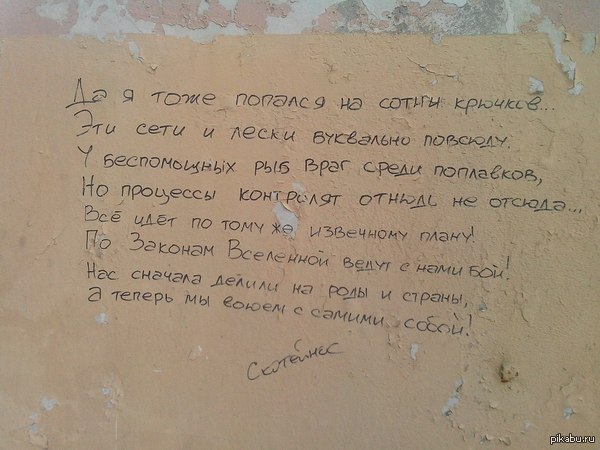 Да я тоже попался на сотни крючков...
Эти сети и лески буквально повсюду.
У беспомощных рыб враг среди поплавков,
Но процессы контролят отнюдь не отсюда...
Всё идёт по тому же извечному плану!
По Законам Вселенной ведут с нами бой!
Нас сначала делили на роды и страны,
а теперь мы воюем с самими собой!
pikabu.ru